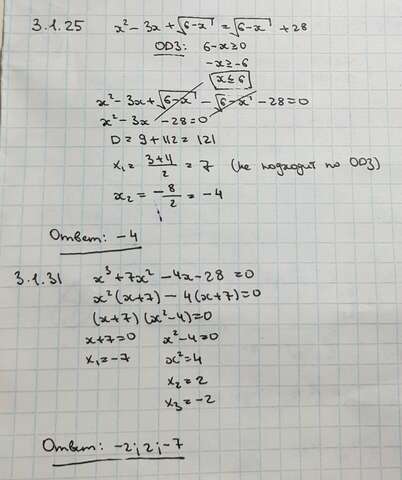 3.1.25 x² - 3x + √(6-x) = √(6-x) + 28
ОДЗ: 6-x ≥ 0
-x ≥ -6
x ≤ 6
x² - 3x + √(6-x) - √(6-x) - 28 = 0
x² - 3x - 28 = 0
D = 9 + 112 = 121
x₁ = (3+11)/2 = 7 (не подходит по ОДЗ)
x₂ = -8/2 = -4
Ответ: -4
3.1.31 x³ + 7x² - 4x - 28 = 0
x²(x+7) - 4(x+7) = 0
(x+7)(x²-4) = 0
x+7=0 x²-4=0
x₁=-7 x²=4
x₂ = 2
x₃ = -2
Ответ: -2; 2; -7